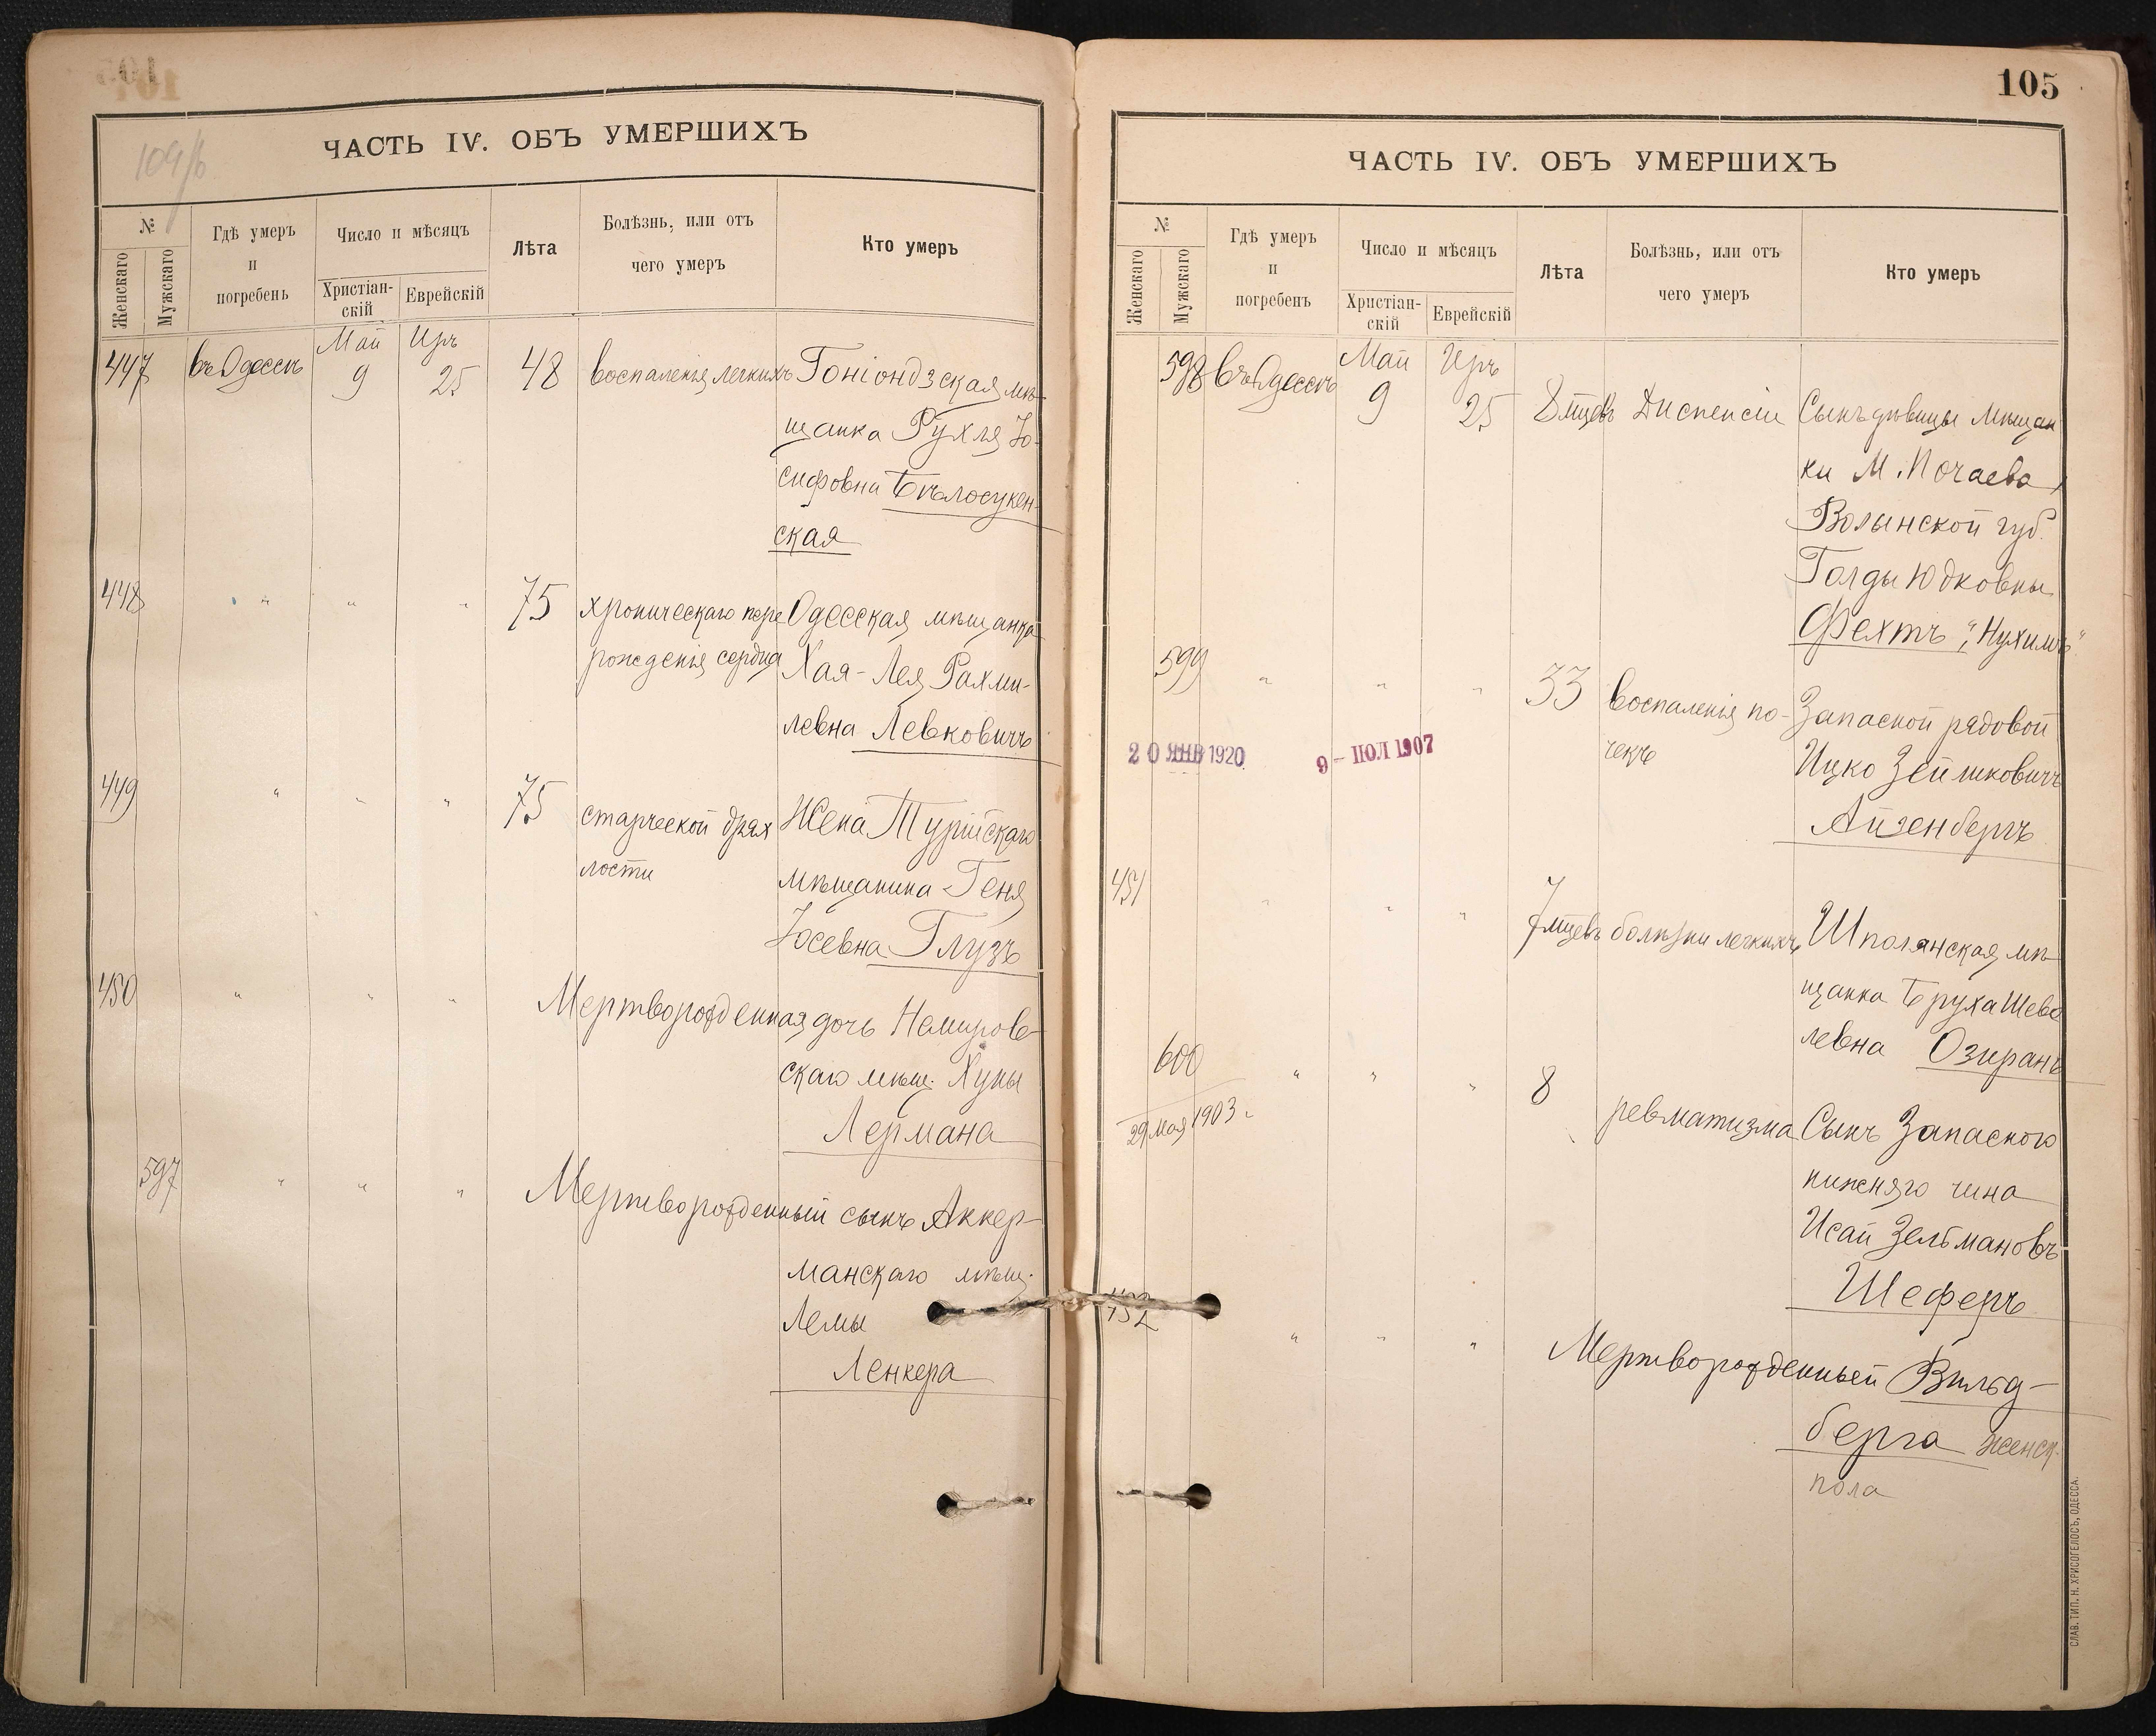 104/б
ЧАСТЬ IV. ОБЪ УМЕРШИХЪ
№
Женскаго
Мужскаго
Гдѣ умеръ
и
погребенъ
Число и мѣсяцъ
Христіан-
скій
Еврейскій
Лѣта
Болѣзнь, или отъ
чего умеръ
Кто умеръ
Май Иръ
447 въ Одессѣ 9 25 48 воспаленія легкихъ Гоніондзская мѣ-
щанка Рухля Іо-
сифовна Бѣлосукен-
ская
448 " " " 75 хроническаго пере Одесская мѣщанка
рожденія сердца Хая-Лея Рахми-
левна Левковичъ
449 " " " 75 старческой дрях Жена Турійскаго
лости мѣщанина Геня
Іосевна Глузъ
450 " " " Мертворожденная дочь Немиров-
скаго мѣщ. Хуны
Лермана
597 " " " Мертворожденный сынъ Аккер-
манскаго мѣщ.
Лемы
Ленкера
105
ЧАСТЬ IV. ОБЪ УМЕРШИХЪ
№
Женскаго
Мужскаго
Гдѣ умеръ
и
погребенъ
Число и мѣсяцъ
Христіан-
скій
Еврейскій
Лѣта
Болѣзнь, или отъ
чего умеръ
Кто умеръ
Май Иръ
598 въ Одессѣ 9 25 8 мцевъ Диспепсіи Сынъ дѣвицы мѣщан
ки М. Почаева,
Волынской губ.
Голды Юдковны
Фехтъ, "Нухимъ"
599 " " " 33 воспаленія по- Запасной рядовой
чекъ Ицко Зейликовичъ
Айзенбергъ
20 ЯНВ 1920
9 - ІЮЛ 1907
451 " " " 7 мцевъ болѣзни легкихъ Шполянская мѣ
щанка Бруха Шево
левна Озиранъ
600 " " " 8 ревматизма Сынъ Запасного
29 мая 1903 г.
нижняго чина
Исай Зельмановъ
Шеферъ
452 " " " Мертворожденный Вильд-
берга женск.
пола
СЛАВ. ТИП. Н. ХРИСОГЕЛОСЪ, ОДЕССА.